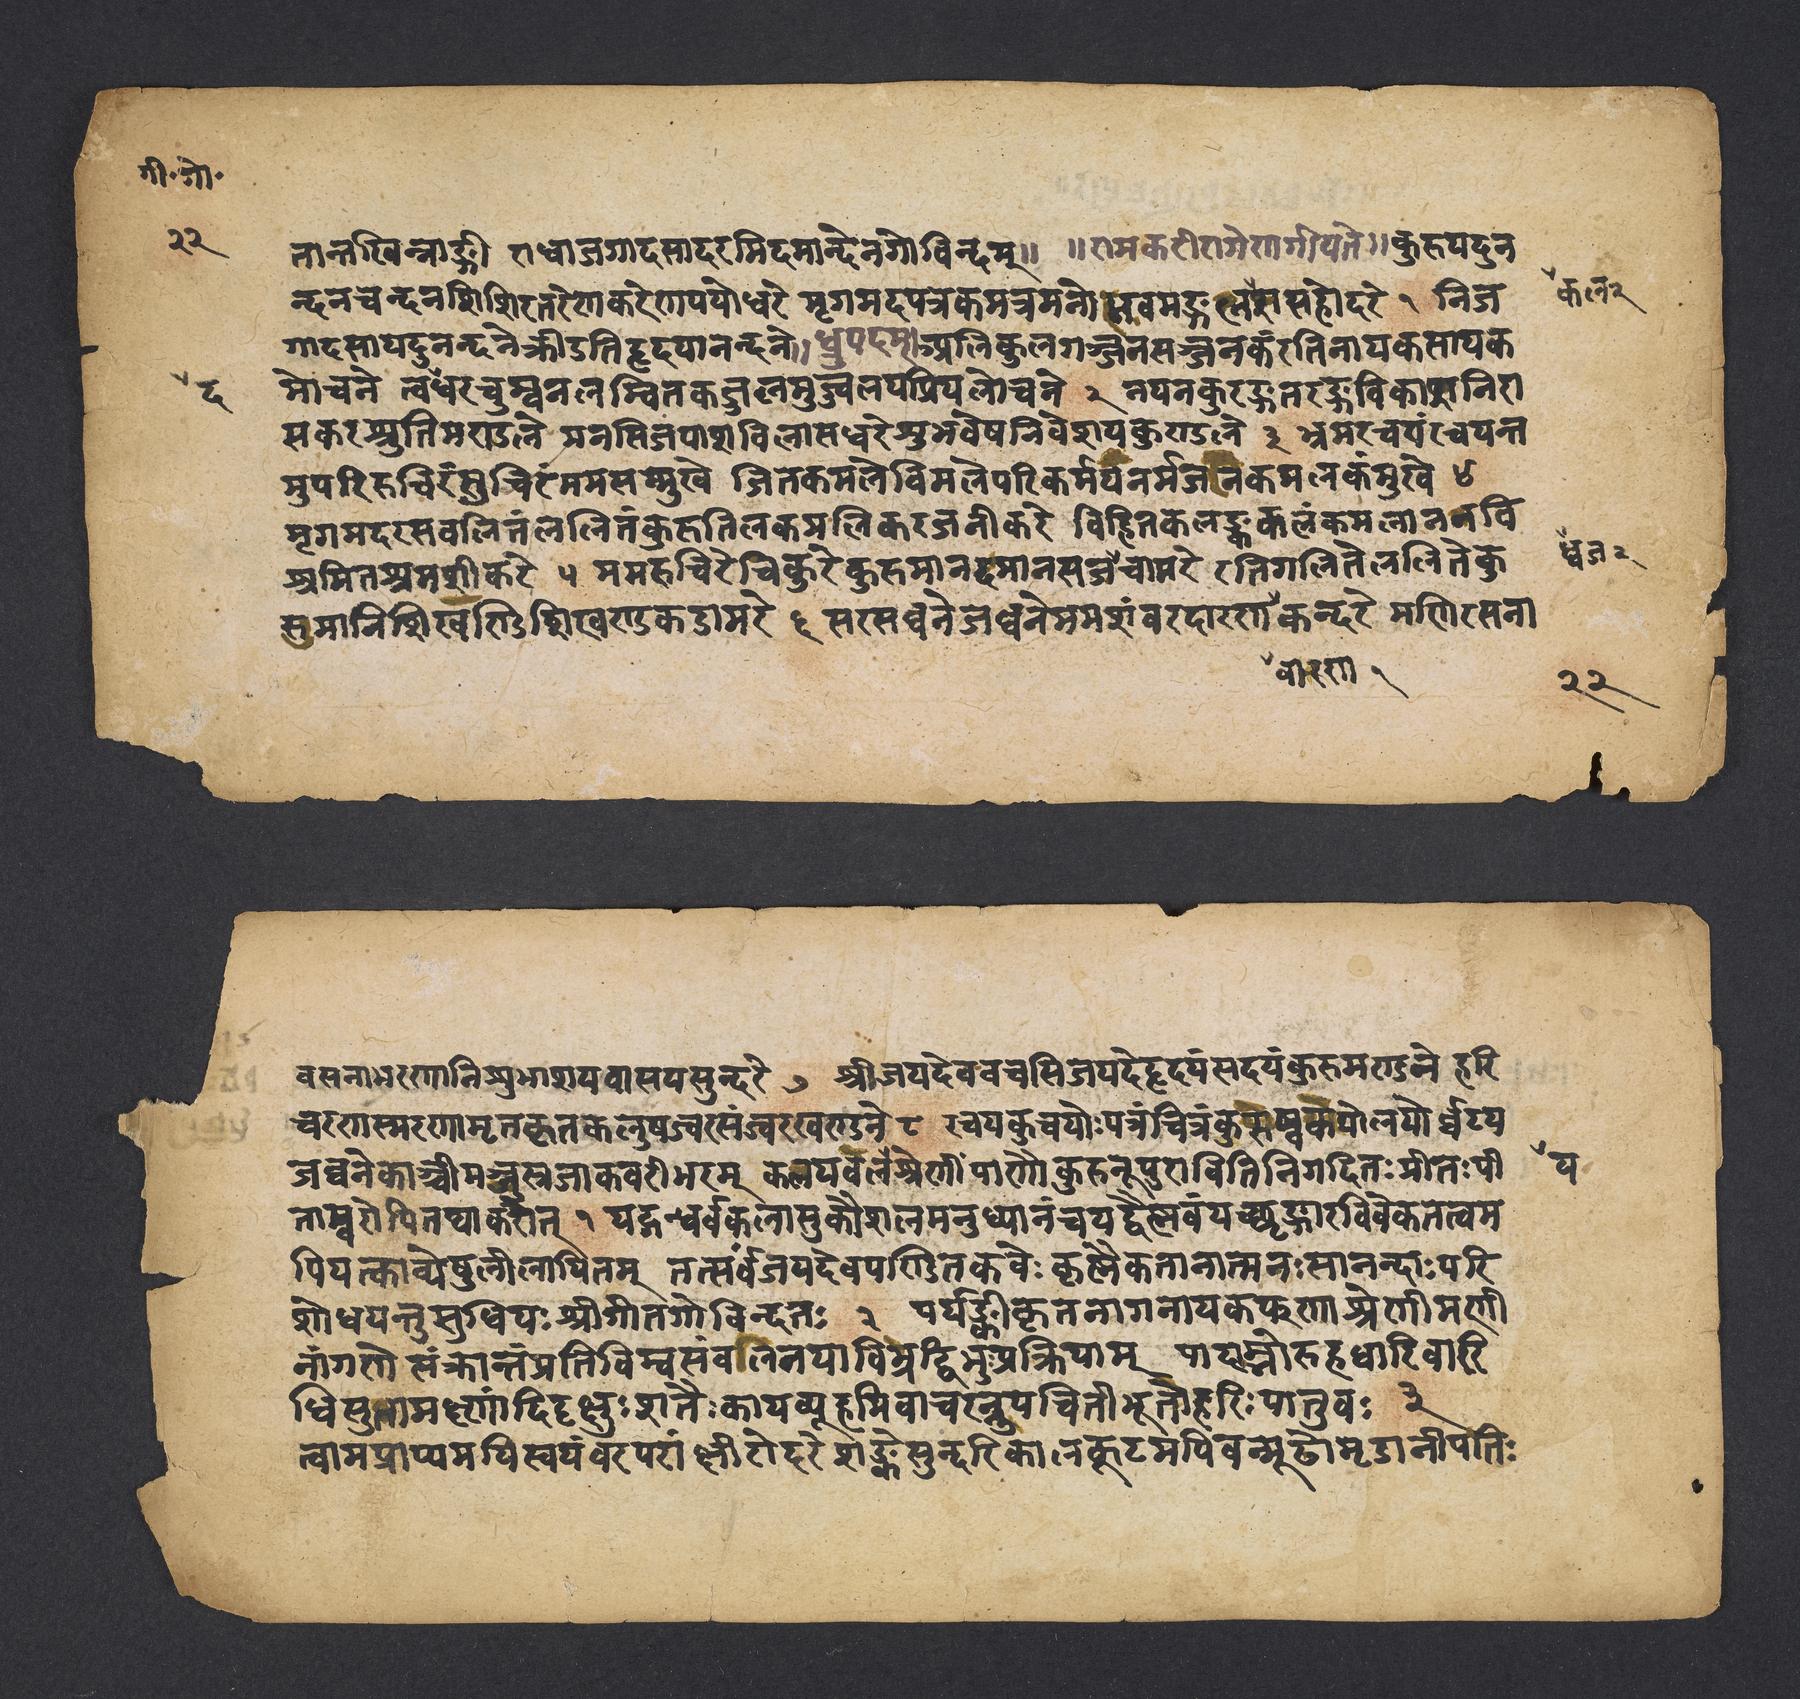 गी॰गो॰
२२
तान्तखिन्नाङ्गी राधाजगादसादरमिदमानन्देनगोविन्दम्॥ ॥रामकरीरागेणगीयते॥कुरुयदुन
न्दनचन्दनशिशिरतरेणकरेणपयोधरे मृगमदपत्रकमत्रमनोभवमङ्गलसहोदरे १ निज
कलश२
गादसायदुनन्दनेक्रीडतिहृदयानन्दने॥ध्रुपदम्॥अलिकुलगञ्जनसञ्जनकंरतिनायकसायक
द
मोचने त्वधरचुम्बनलम्बितकज्जलमुज्ज्वलयप्रियलोचने २ नयनकुरङ्गतरङ्गविकाशनिरा
सकरश्रुतिमण्डले मनसिजपाशविलासधरेशुभवेषनिवेशयकुण्डले ३ भ्रमरचयंरचयन्त
मुपरिरुचिरंसुचिरंममसम्मुखे जितकमलेविमलेपरिकर्मयनर्मजनकमलकंमुखे ४
मृगमदरसवलितंललितंकुरुतिलकमलिकरजनीकरे विहितकलङ्ककलंकमलाननवि
श्रमितश्रमशीकरे ५ ममरुचिरेचिकुरेकुरुमानदमानसजचामरे रतिगलितेललितेकु
ध्वज२
सुमानिशिखण्डिशिखण्डकडामरे ६ सरसघनेजघनेममशंवरदारणकन्दरे मणिरसना
वारण १
२२
वसनाभरणानिशुभाशयवासयसुन्दरे ७ श्रीजयदेववचसिजयदेहृदयंसदयंकुरुमण्डने हरि
चरणस्मरणामृतकृतकलुषज्वरसंज्वरखण्डने ८ रचयकुचयोःपत्रंचित्रंकुरुष्वकपोलयोर्घटय
जघनेकाञ्चीमञ्चस्रजाकवरीभरम् कलयवलयश्रेणींपाणौकुरुनूपुरावितिनिगदितःप्रीतःपी
य
ताम्बरोपितथाकरोत् १ यद्गन्धर्वकलासुकौशलमनुध्यानंचयद्वैष्णवंयच्छृङ्गारविवेकतत्वम
पियत्काव्येषुलीलायितम् तत्सर्वंजयदेवपण्डितकवेः कृष्णैकतानात्मनःसानन्दाःपरि
शोधयन्तुसुधियःश्रीगीतगोविन्दतः २ पर्यङ्कीकृतनागनायकफणाश्रेणीमणी
नांगणे संक्रान्तंप्रतिविम्बसंवलनयाविभ्रद्विभुःप्रक्रियाम् पादाम्भोरुहधारिवारि
धिसुतामक्ष्णांदिदृक्षुःशतैःकायव्यूहमिवाचरन्नुपचितीभूतोहरिःपातुवः ३
त्वामप्राप्यमयिस्वयंवरपरांक्षीरोदरेशङ्केसुन्दरिकालकूटमपिबन्मूढोमृडानीपतिः